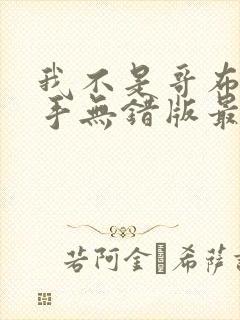 我不是哥布
手無錯版最
若阿金·希薩